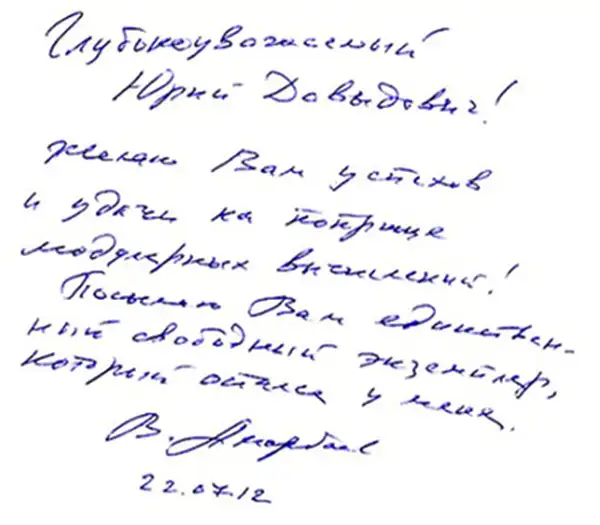 Глубокоуважаемый
Юрий Давыдович!
желаю Вам успехов
и удачи на поприще
модулярных вычислений!
Посылаю Вам единствен-
ный свободный экземпляр,
который остался у меня.
В. Амербаев
22.07.12